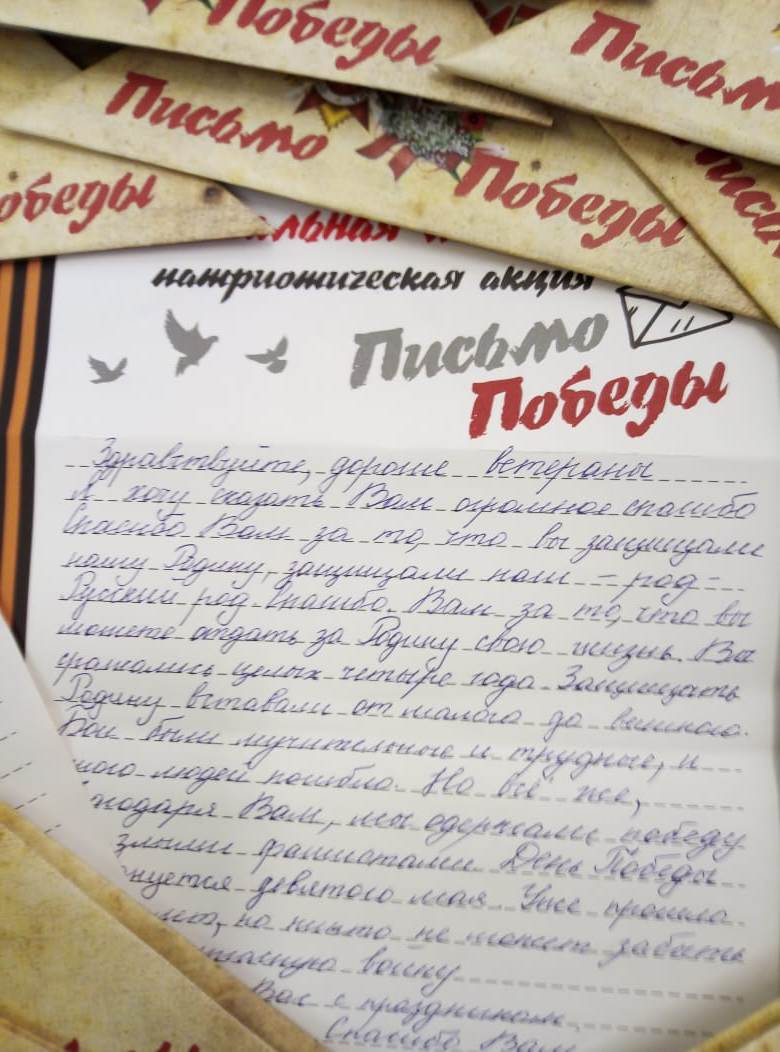 Победы
Письмо
Письмо
Победы
Победы
патриотическая акция
Письмо
Победы
Здравствуйте, дорогие ветераны
Я хочу сказать Вам огромное спасибо
Спасибо Вам за то, что вы защищали
нашу Родину, защищали наш - род -
Русский род. Спасибо Вам за то, что вы
можете отдать за Родину свою жизнь. Вы
сражались целых четыре года. Защищать
Родину вставали от малого до великого.
Бои были мучительные и трудные, и
людей погибло. Но всё же,
Вам, мы одержали победу
злыми фашистами. День Победы
девятого мая. Уже прошло
лет, но никто не может забыть
войну
Вас с праздником
Спасибо Вам